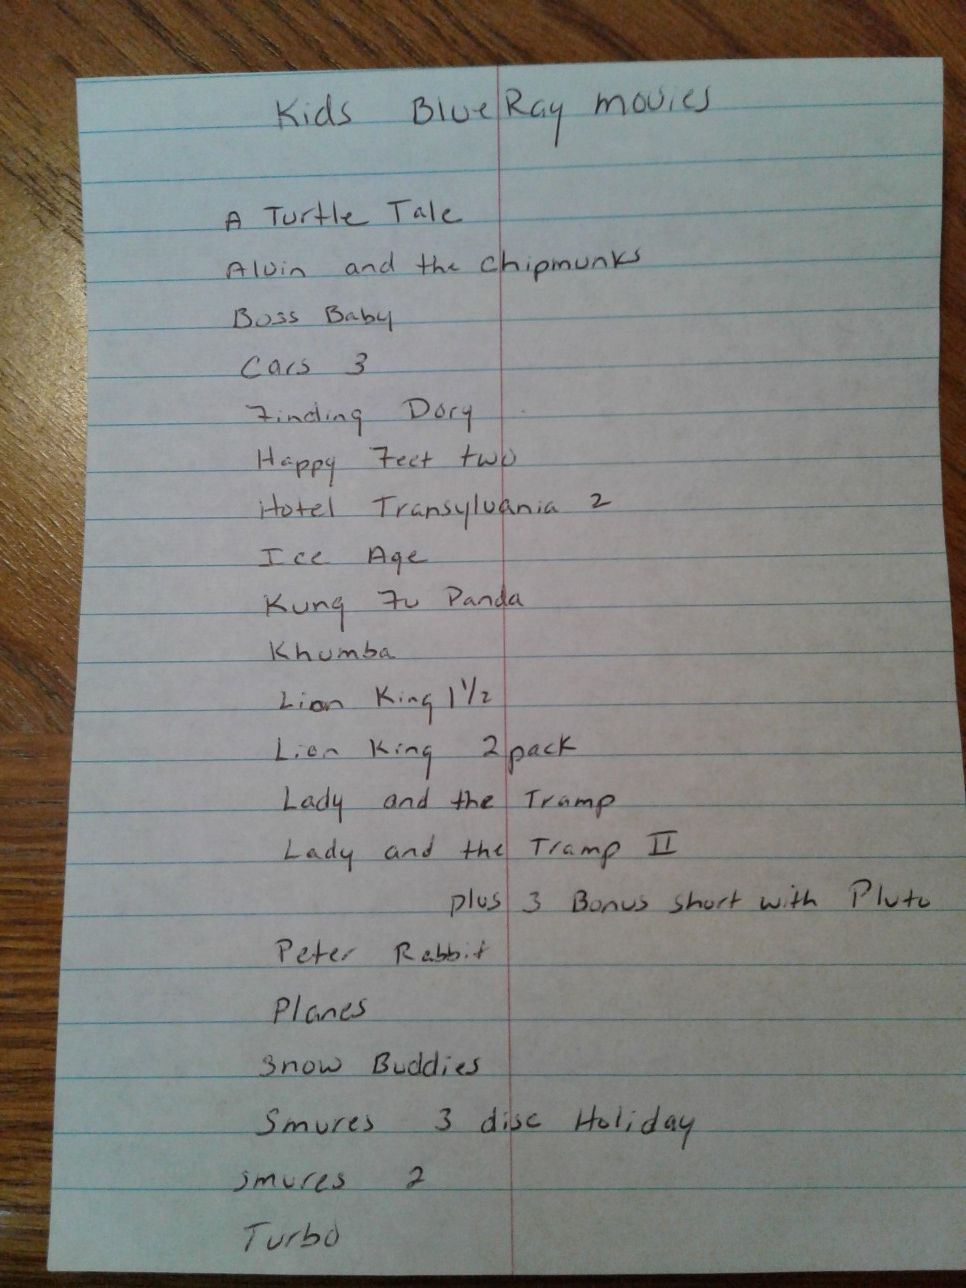 Kids BlueRay movies
A Turtle Tale
Alvin and the chipmunks
Boss Baby
Cars 3
Finding Dory
Happy Feet two
Hotel Transylvania 2
Ice Age
Kung Fu Panda
Khumba
Lion King 1 1/2
Lion King 2 pack
Lady and the Tramp
Lady and the Tramp II
plus 3 Bonus short with Pluto
Peter Rabbit
Planes
Snow Buddies
Smures 3 disc Holiday
smures 2
Turbo